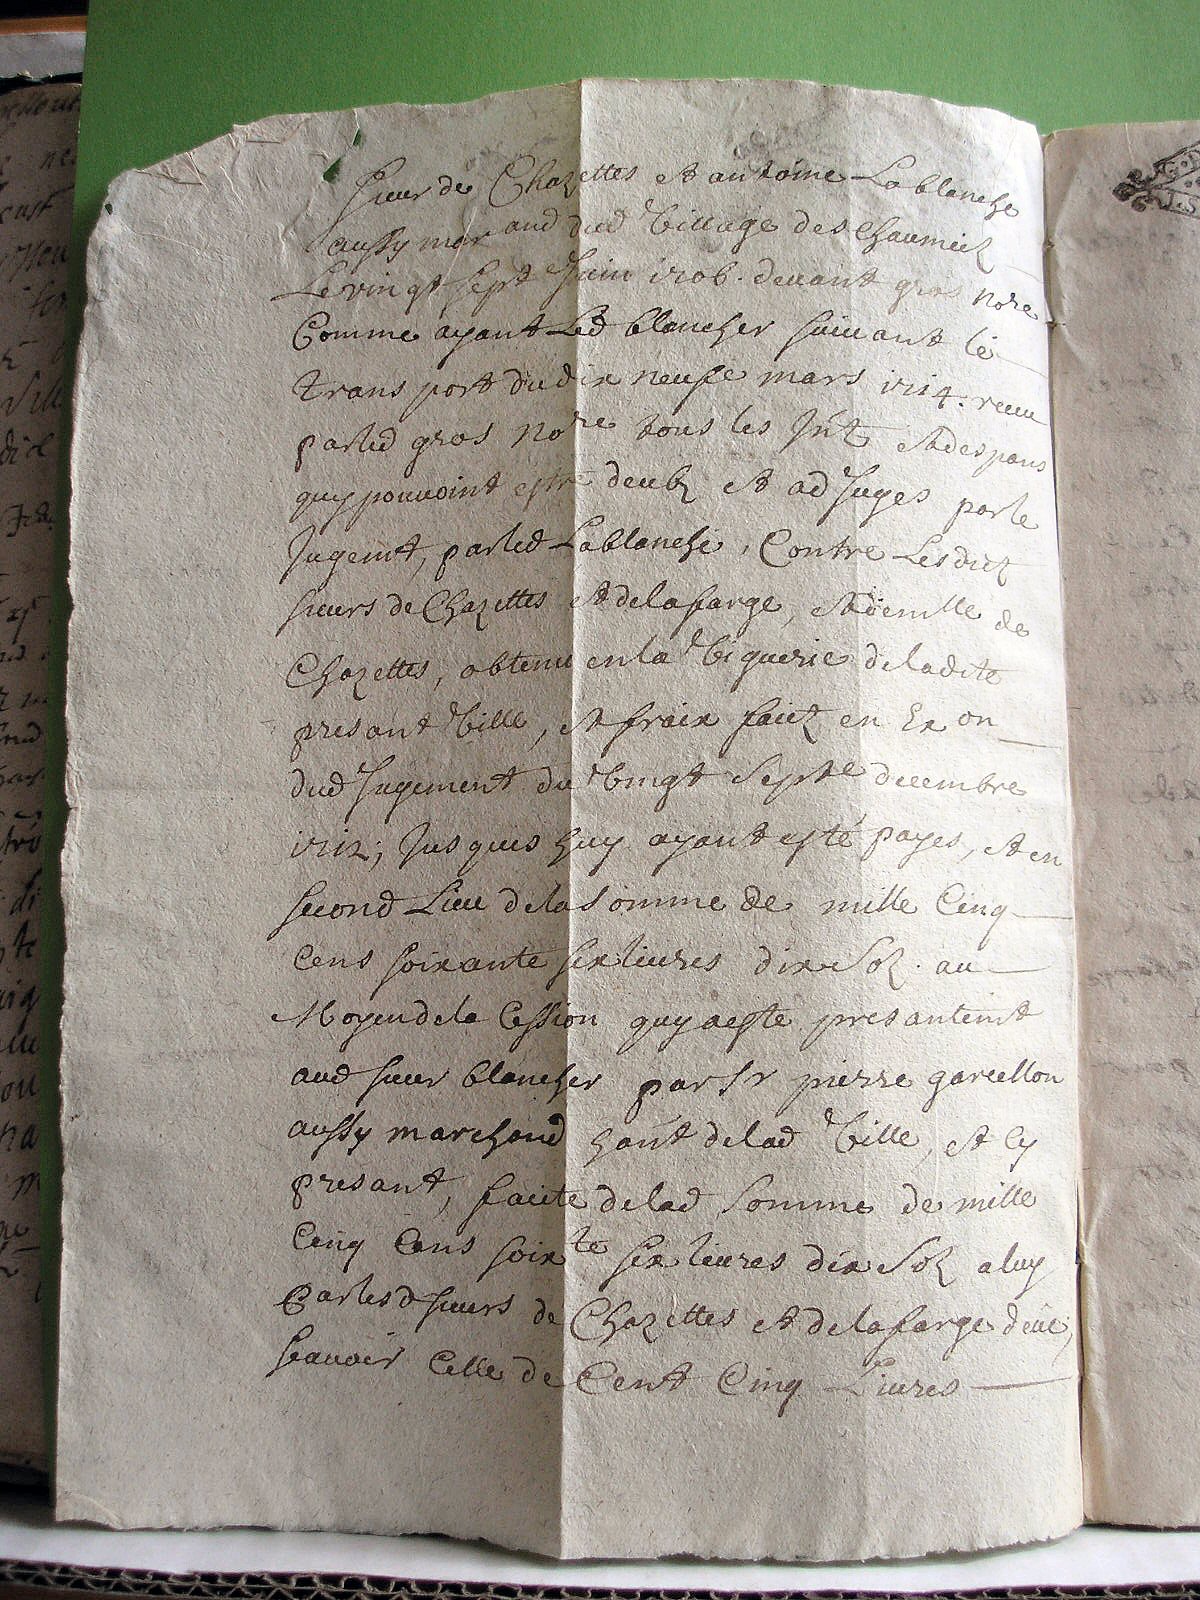 sieur de Chazettes et antoine Lablanche
aussy marcand dud village des chaumeilz
Le vingt sept Juin 1706. devant gros nore
Comme ayant Led blancher suivant le
transport du dix neufe mars 1714. receu
parled gros nore tous les Intz et despans
quy pouvoint estre deubz et adjuges par le
Jugemt, parled Lablanche, Contre Lesditz
sieurs de Chazettes et delafarge, et demlle de
Chazettes, obtenu en la viguerie deladite
presant ville, et fraix faitz en Exon
dud Jugement du vingt septe decembre
1712; Jusques huy ayant esté payes, et en
second Lieu dela somme de mille Cinq
Cens soixante six livres dix solz. au
Moyen dela Cession quy a este presantemt
aud sieur blancher par sr pierre garcellon
aussy marchand hant delad ville, et cy
presant, faite delad somme de mille
Cinq Cens soixte six livres dix solz a luy
Par lesd sieurs de Chazettes et delafarge deüe,
scavoir celle de Cent Cinq Livres